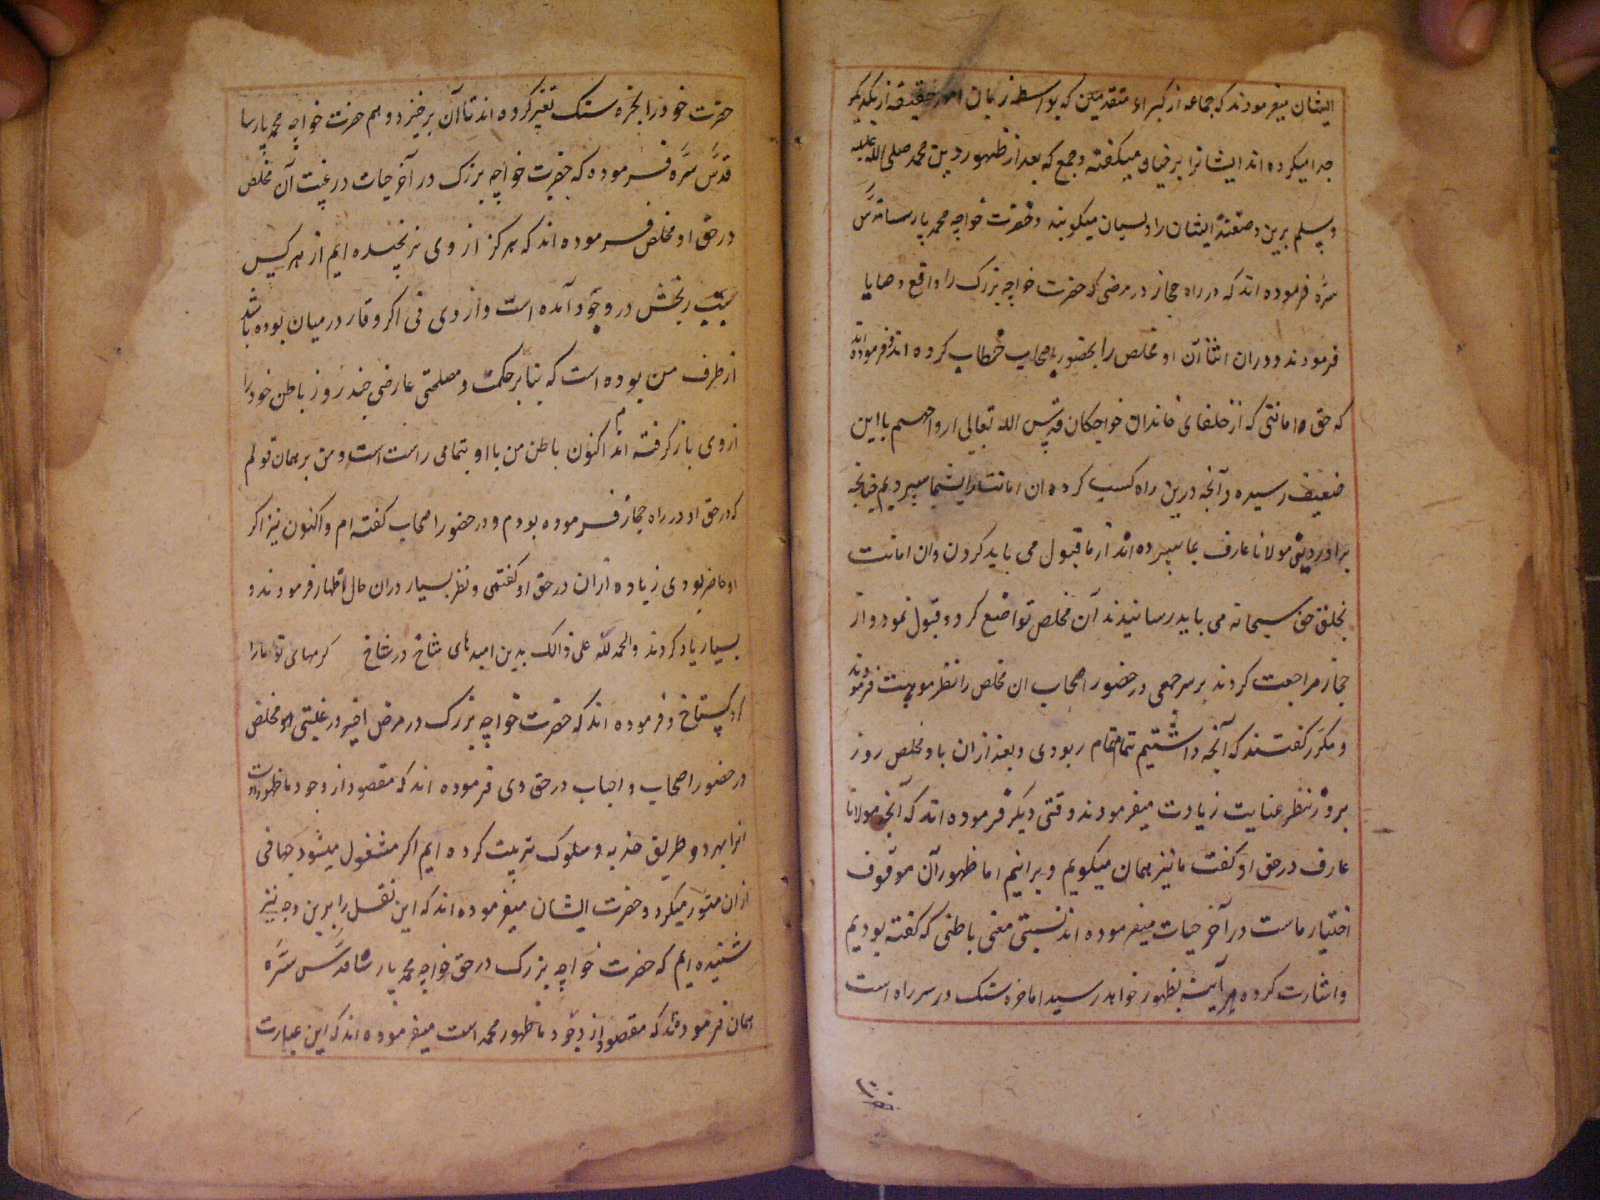 ایشان میفرمودند که جماعه از کبراء متقدمین که بواسطه زمان امور حقیقه از یکدیگر
جدا میکرده اند ایشانرا بر خیان میگفته و جمع که بعد از ظهور دین محمد صلی الله علیه
وسلم برین وصفند ایشان را ولسیان میگویند و حضرت خواجه محمد پارسا قدس
سره فرموده اند که در راه حجاز در مرضی که حضرت خواجه بزرک را واقع وصایا
فرمودند و دران اثنا آن او مخلص را بحضور اصحاب خطاب کرده اند و فرموده اند
که حق و امانتی که از خلفای خاندان خواجکان قدس الله تعالی ارواحهم با این
ضعیف رسیده و آنچه درین راه کسب کرده ان امانت را بشما سپردیم چنانچه
برادر دینی مولانا عارف بما سپرده اند از ما قبول می باید کردن وان امانت
بخلق حق سبحانه می باید رسانیدند آن مخلص تواضع کرد و قبول نمود و از
حجاز مراجعت کردند بر سر جمعی در حضور اصحاب ان مخلص را نظر موهبت فرمودند
و مکرر کفتند که آنچه داشتیم تمام تمام ربودی و بعد ازان باو مخلص روز
بروز نظر عنایت زیادت میفرمودند و قتی دیکر فرموده اند که آنچه مولانا
عارف در حق او کفت ما نیز همان میکویم و برانیم اما ظهور آن موقوف
اختیار ماست در آخر حیات میفرموده اند نسبتی معنی باطنی که کفته بودیم
واشارت کرده هر آینه بظهور خواهد رسید اما خره سنک در سر راه است
حضرت
حضرت خود را بخره سنک تعبیر کرده اند تا آن برخیزد و هم حضرت خواجه محمد پارسا
قدس سره فرموده که حضرت خواجه بزرک در آخر حیات در غیبت آن مخلص
در حق او مخلص فرموده اند که هرکز از وی نرنجیده ایم از هر کس
سبب رنجش در وجود آمده است و از وی نی اکر وقار در میان بوده باشد
از طرف من بوده است که بنا بر حکمت و مصلحتی عارضی چند روز باطن خود را
از وی باز کرفته ام اکنون باطن من با او بتمامی راست است و من بر همان قولم
که در حق او در راه حجاز فرموده بودم و در حضور اصحاب کفته ام و اکنون نیز اکر
او حاضر بودی زیاده ازان در حق او کفتمی و نظر بسیار دران حال اظهار فرمودند و
بسیار یاد کردند والحمد لله علی ذالک بدین امیدهای شاخ در شاخ کرمهای تو ما را
کرد کستاخ و فرموده اند که حضرت خواجه بزرک در مرض اخیر در غیبتی او مخلص
در حضور اصحاب و احباب در حق وی فرموده اند که مقصود از وجود ما ظهور اوست
او را بهر دو طریق جذبه و سلوک تربیت کرده ایم اکر مشغول میشود جهانی
ازان منور میکردد و حضرت ایشان میفرموده اند که این نقل را برین وجه نیز
شنیده ایم که حضرت خواجه بزرک در حق خواجه محمد پارسا قدس سره
همان فرمودند که مقصود از وجود ما ظهور محمد است میفرموده اند که این عبارت